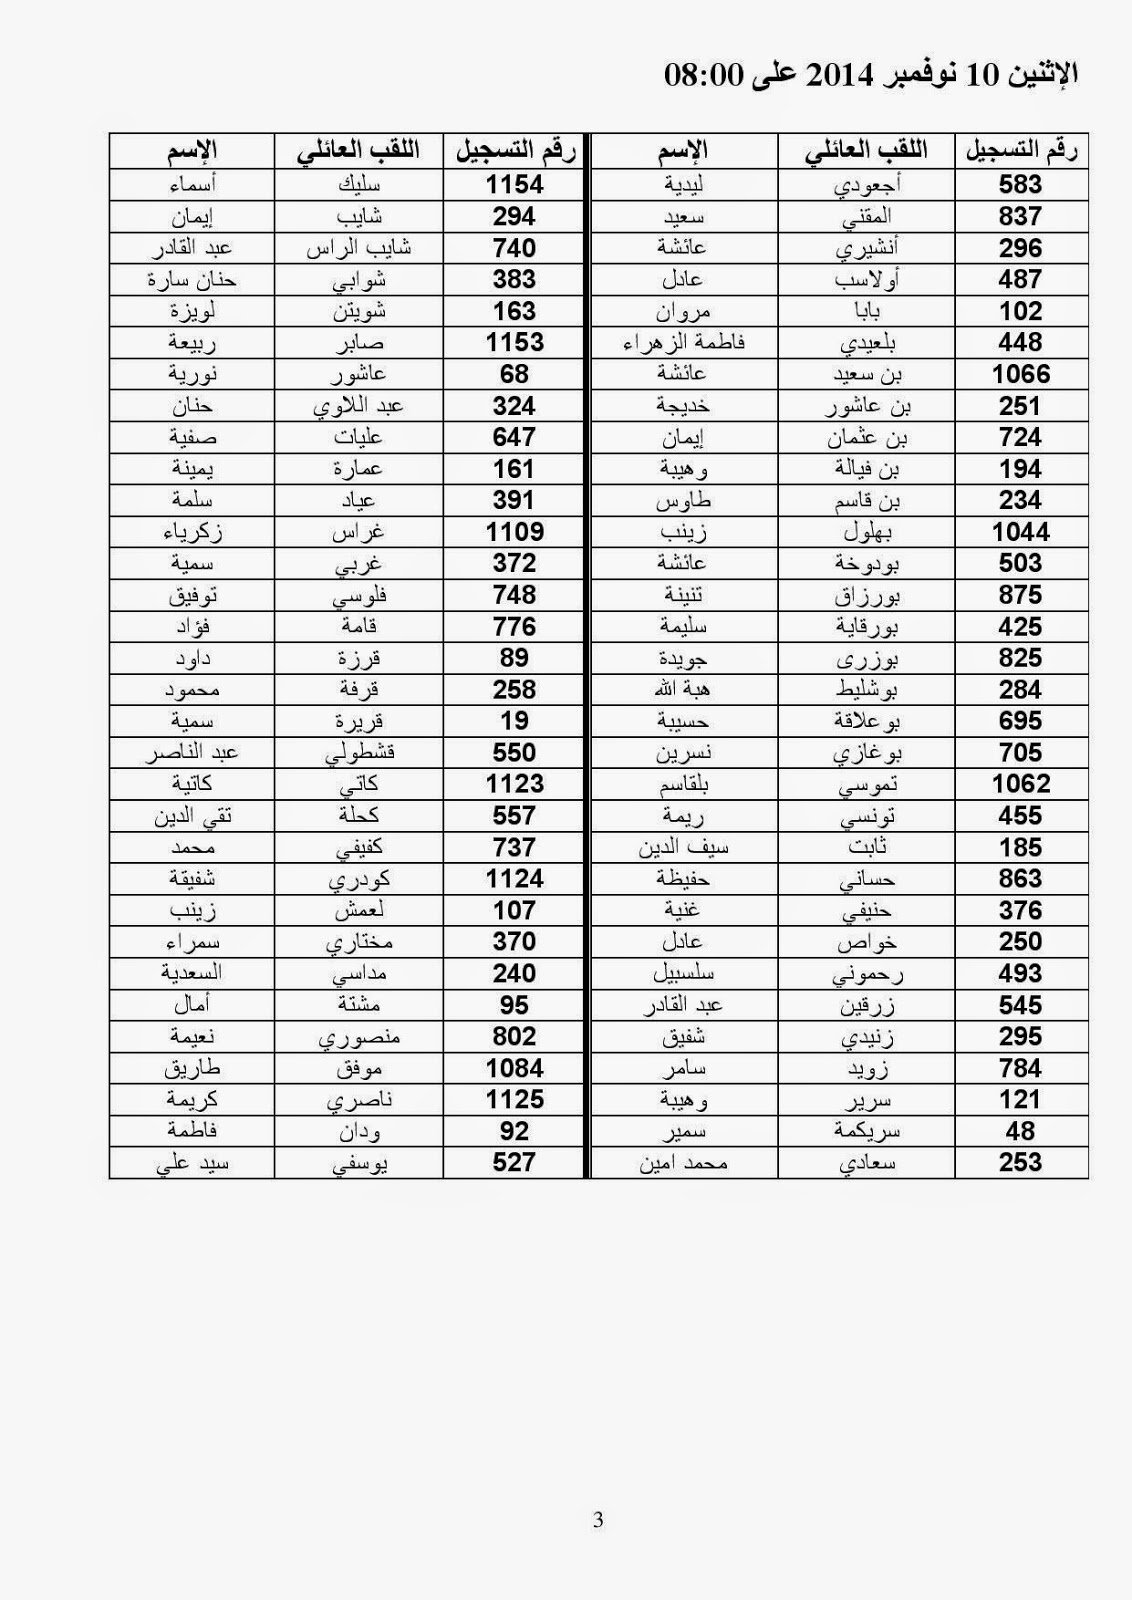 الإثنين 10 نوفمبر 2014 على 08:00
رقم التسجيل اللقب العائلي الإسم رقم التسجيل اللقب العائلي الإسم
583 أجعودي ليدية 1154 سليك أسماء
837 المقني سعيد 294 شايب إيمان
296 أنشيري عائشة 740 شايب الراس عبد القادر
487 أولاسب عادل 383 شوابي حنان سارة
102 بابا مروان 163 شويتن لويزة
448 بلعيدي فاطمة الزهراء 1153 صابر ربيعة
1066 بن سعيد عائشة 68 عاشور نورية
251 بن عاشور خديجة 324 عبد اللاوي حنان
724 بن عثمان إيمان 647 عليات صفية
194 بن فيالة وهيبة 161 عمارة يمينة
234 بن قاسم طاوس 391 عياد سلمة
1044 بهلول زينب 1109 غراس زكرياء
503 بودوخة عائشة 372 غربي سمية
875 بورزاق تنينة 748 فلوسي توفيق
425 بورقاية سليمة 776 قامة فؤاد
825 بوزرى جويدة 89 قرزة داود
284 بوشليط هبة الله 258 قرفة محمود
695 بوعلاقة حسيبة 19 قريرة سمية
705 بوغازي نسرين 550 قشطولي عبد الناصر
1062 تموسي بلقاسم 1123 كاتي كاتية
455 تونسي ريمة 557 كحلة تقي الدين
185 ثابت سيف الدين 737 كفيفي محمد
863 حساني حفيظة 1124 كودري شفيقة
376 حنيفي غنية 107 لعمش زينب
250 خواص عادل 370 مختاري سمراء
493 رحموني سلسبيل 240 مداسي السعدية
545 زرقين عبد القادر 95 مشتة أمال
295 زنيدي شفيق 802 منصوري نعيمة
784 زويد سامر 1084 موفق طاريق
121 سرير وهيبة 1125 ناصري كريمة
48 سريكمة سمير 92 ودان فاطمة
253 سعادي محمد امين 527 يوسفي سيد علي
3